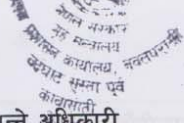 नेपाल सरकार
गृह मन्त्रालय
प्रशासन कार्यालय, नवलपरासी
बर्दघाट सुस्ता पूर्व
कावासोती
अधिकारी